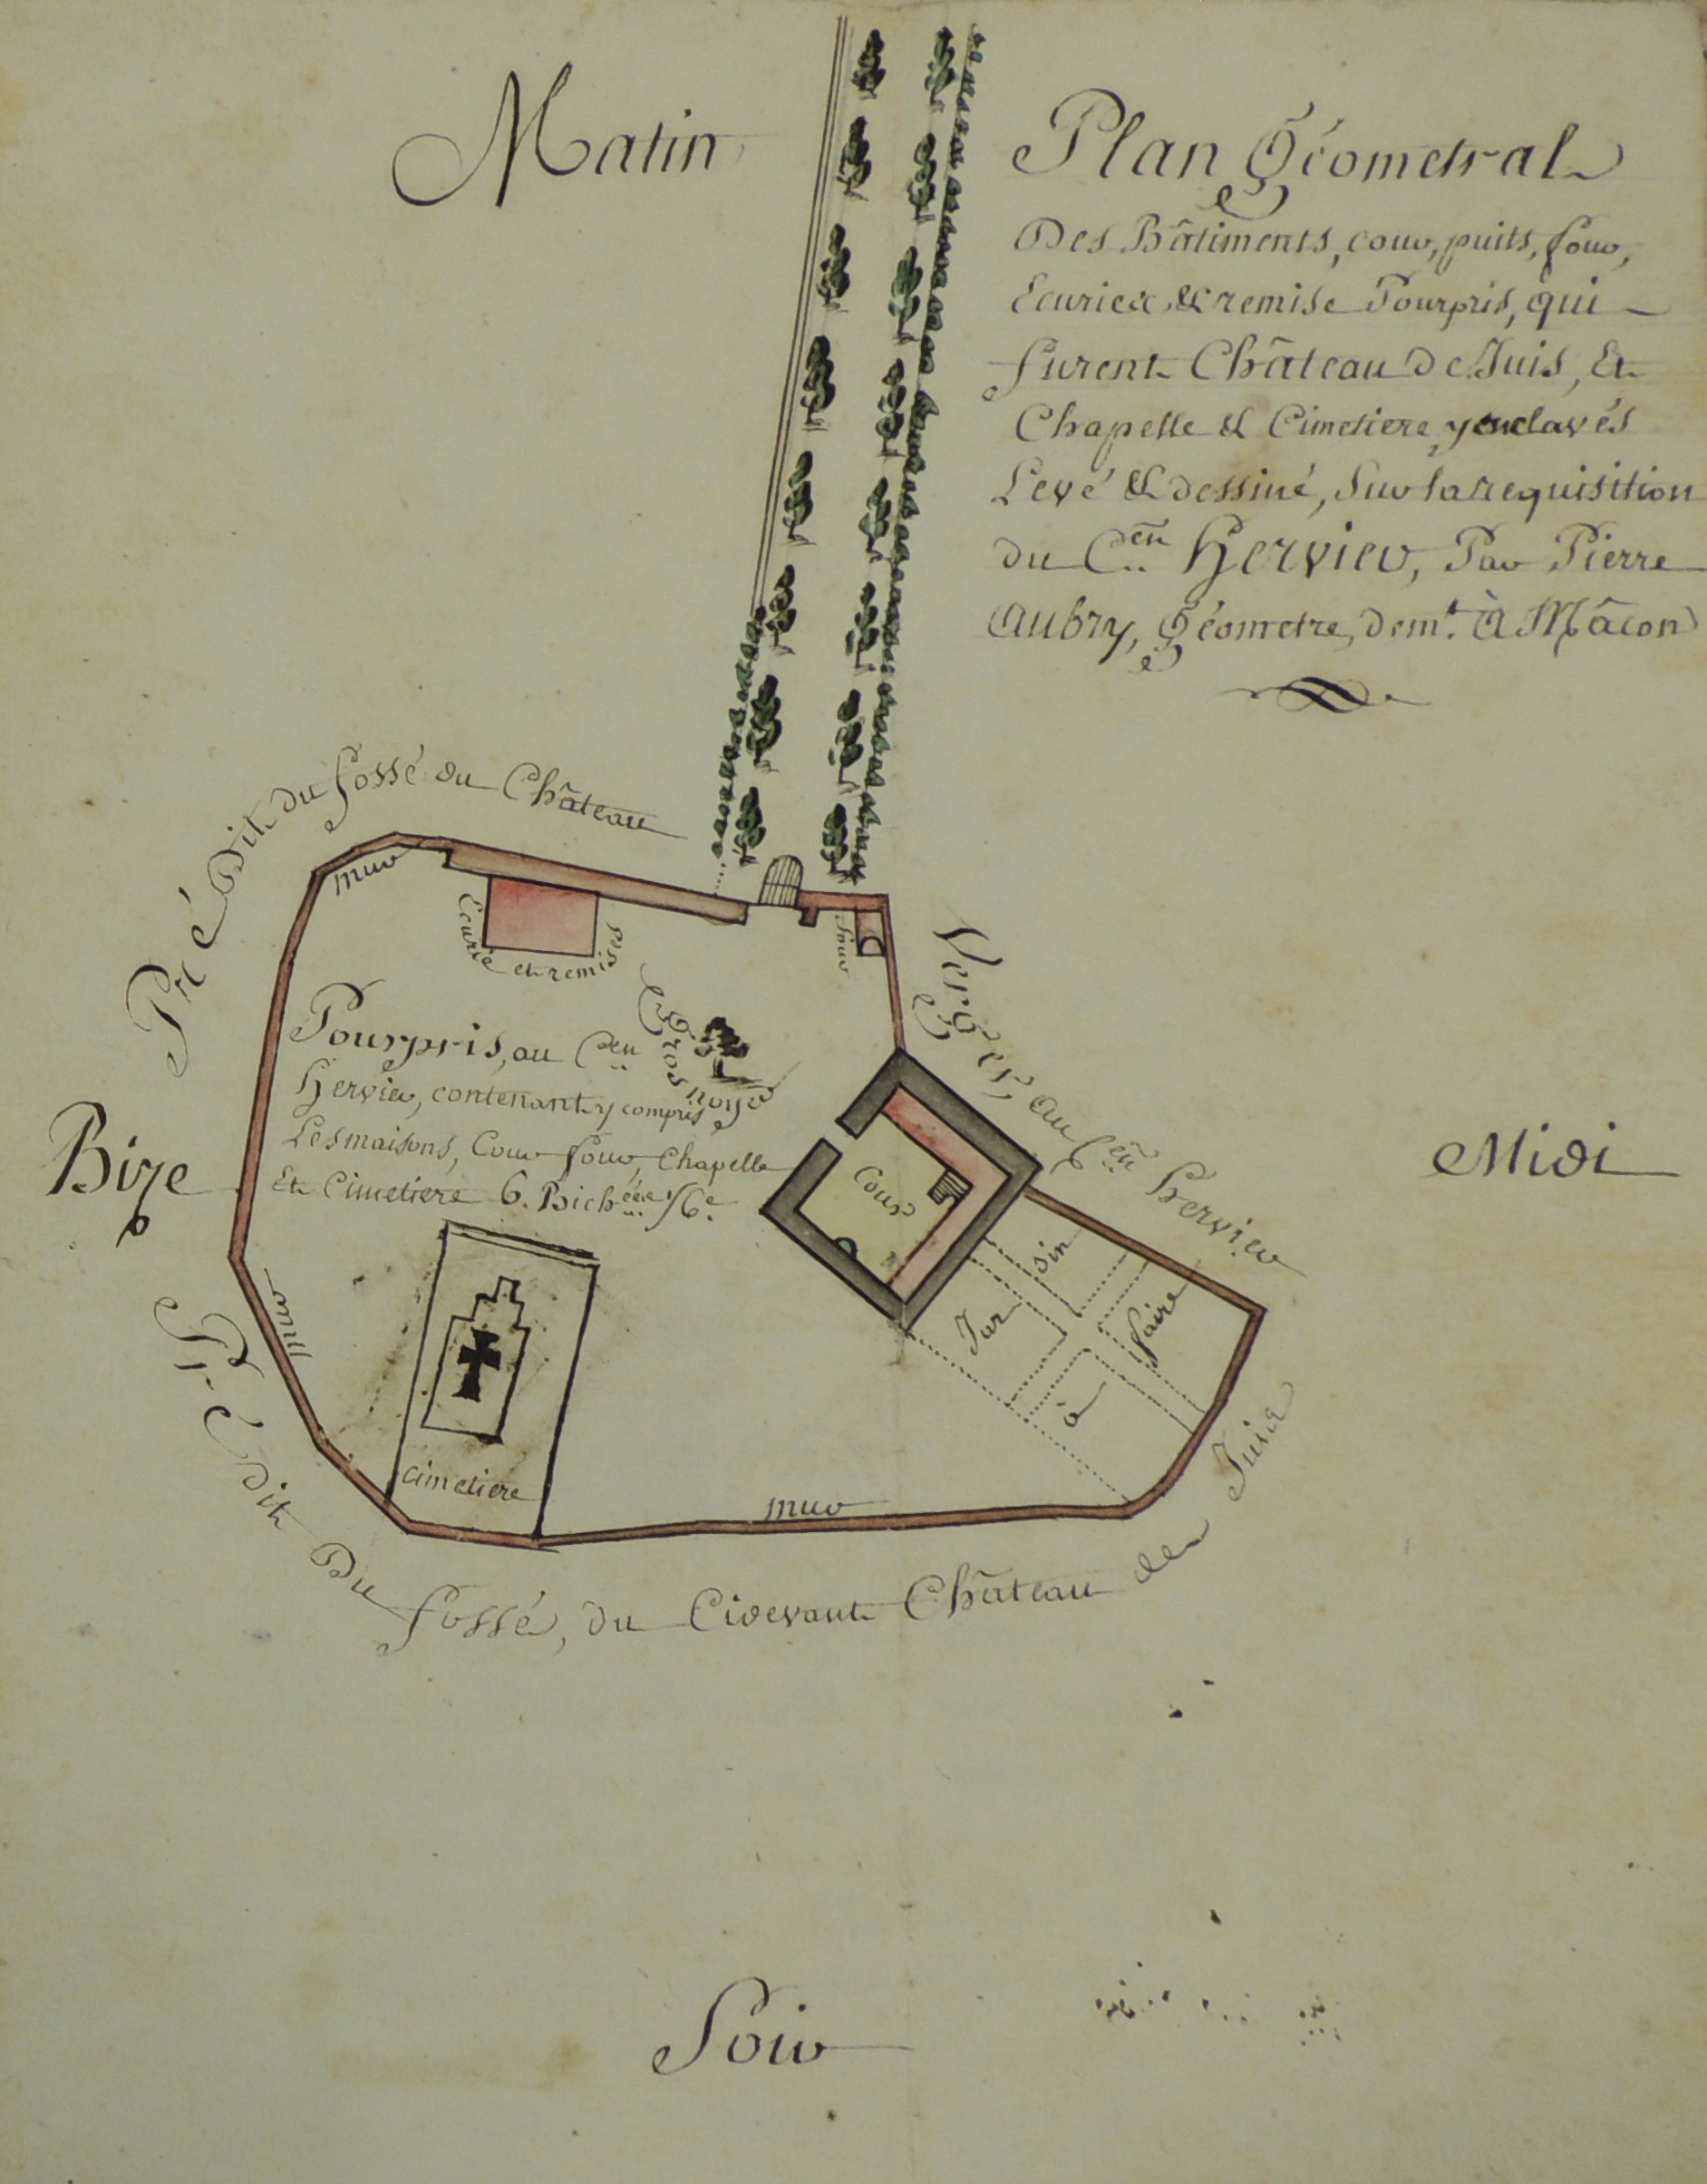 Matin
Plan Géometral
Des Bâtiments, cour, puits, four,
Ecuries & remise Pourpris, qui
furent Château de Juis, Et
Chapelle & Cimetiere y enclavés
Levé & dessiné, Sur la requisition
du C.en Hervieu, Par Pierre
Aubry, Géometre, dem.t à Mâcon
Pré Dit du fossé du Château
mur
Ecurie et remises
four
Verger, au C.en Hervieu
Gros noyer
Pourpris, au C.en
Hervieu, contenant y compris
Les maisons, Cour four, Chapelle
Et Cimetiere 6.
Bize
Midi
Cour
Jar
din
à
faire
mur
cimetiere
mur
Pré dit Du fossé, du Cidevant Château de Juis
Soir